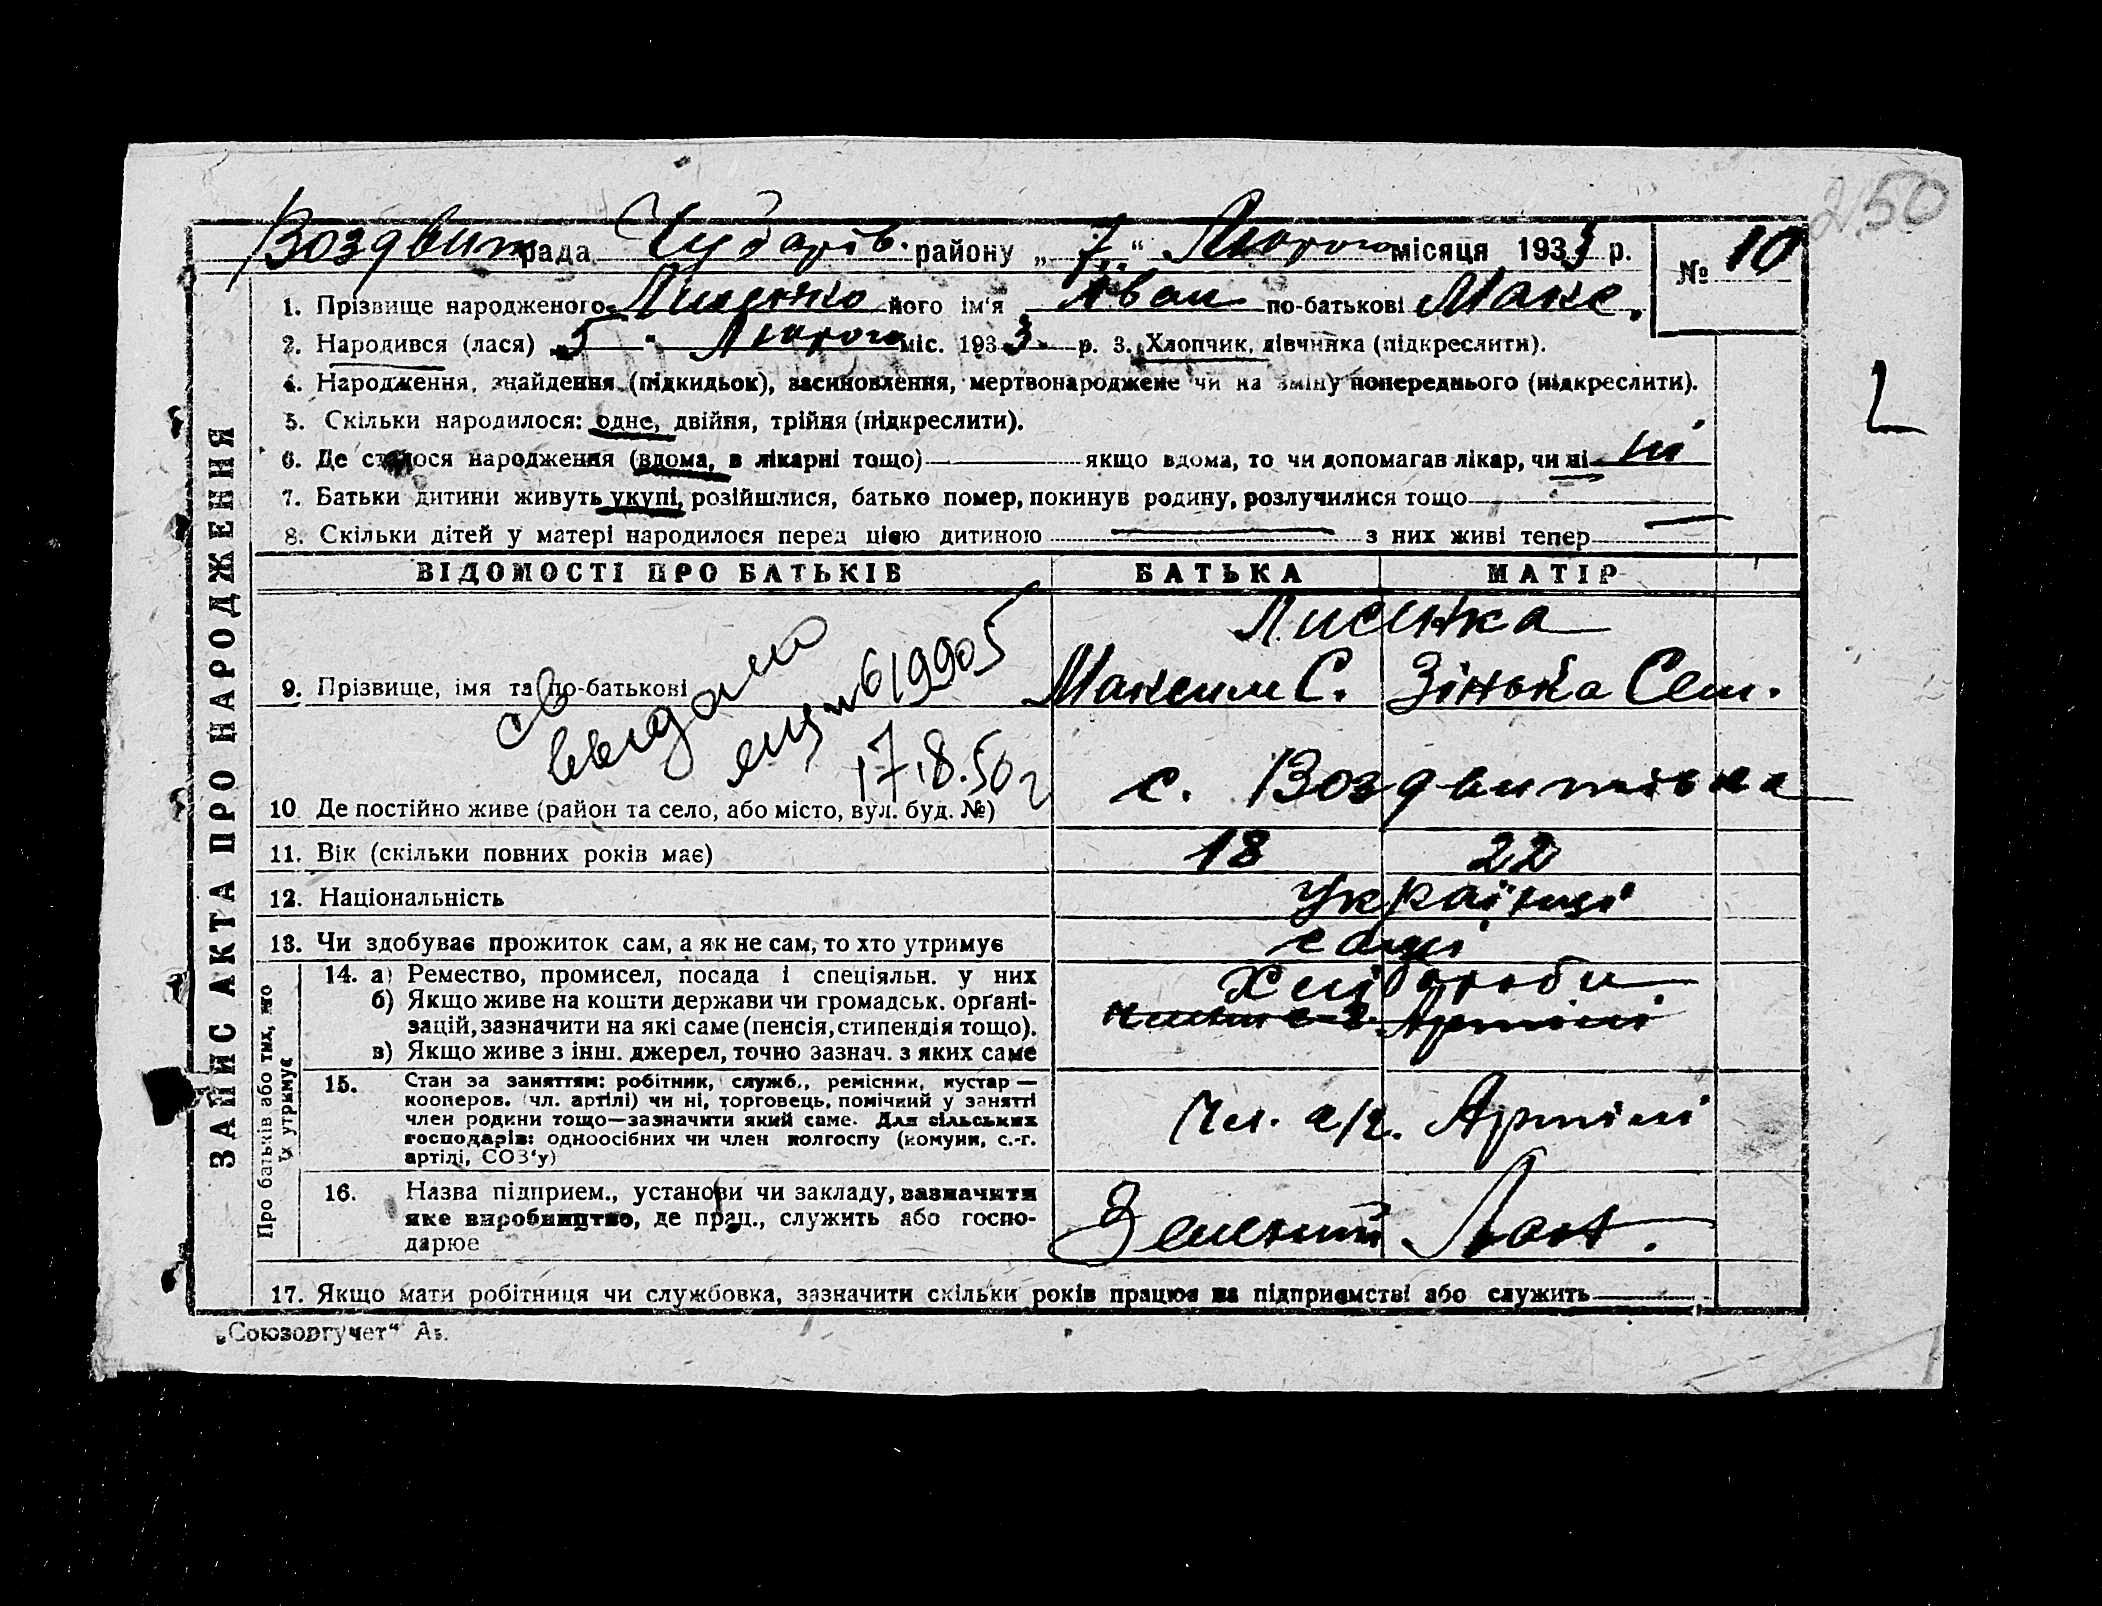 250
Воздвит рада Чубарів. району „7“ Лютого місяця 1933 р. № 10
1. Прізвище народженого Лисенко його ім'я Іван по-батькові Макс.
2. Народився (лася) „5“ Лютого міс. 1933 р. 3. Хлопчик, дівчинка (підкреслити).
4. Народження, знайдення (підкидьок), засиновлення, мертвонароджене чи на зміну попереднього (підкреслити).
2
5. Скільки народилося: одне, двійня, трійня (підкреслити).
6. Де сталося народження (вдома, в лікарні тощо) якщо вдома, то чи допомагав лікар, чи ні ні
7. Батьки дитини живуть укупі, розійшлися, батько помер, покинув родину, розлучилися тощо
8. Скільки дітей у матері народилося перед цією дитиною з них живі тепер
ЗАПИС АКТА ПРО НАРОДЖЕННЯ
ВІДОМОСТІ ПРО БАТЬКІВ БАТЬКА МАТІР
Лисенка
9. Прізвище, імя та по-батькові Максим С. Зінька Сем.
св
выдано
№ 619905
17.8.50г
10. Де постійно живе (район та село, або місто, вул. буд. №) с. Воздвитівка
11. Вік (скільки повних років має) 18 22
12. Національність Українці
13. Чи здобуває прожиток сам, а як не сам, то хто утримує самі
Про батьків або тих, хто їх утримує
14. а) Ремество, промисел, посада і спеціяльн. у них Хлібороби
б) Якщо живе на кошти держави чи громадськ. орґані-
зацій, зазначити на які саме (пенсія, стипендія тощо). Артілі
в) Якщо живе з інш. джерел, точно зазнач. з яких саме
15. Стан за заняттям: робітник, служб., ремісник, кустар —
кооперов. (чл. артілі) чи ні, торговець, помічний у занятті
член родини тощо—зазначити який саме. Для сільських
господарів: одноосібних чи член колгоспу (комуни, с.-г.
артілі, СОЗ'у)
Чл. с/г. Артілі
16. Назва підприєм., установи чи закладу, зазначити
яке виробництво, де прац., служить або госпо-
дарює
Зелений Лан.
17. Якщо мати робітниця чи службовка, зазначити скільки років працює на підприємстві або служить
„Союзоргучет“